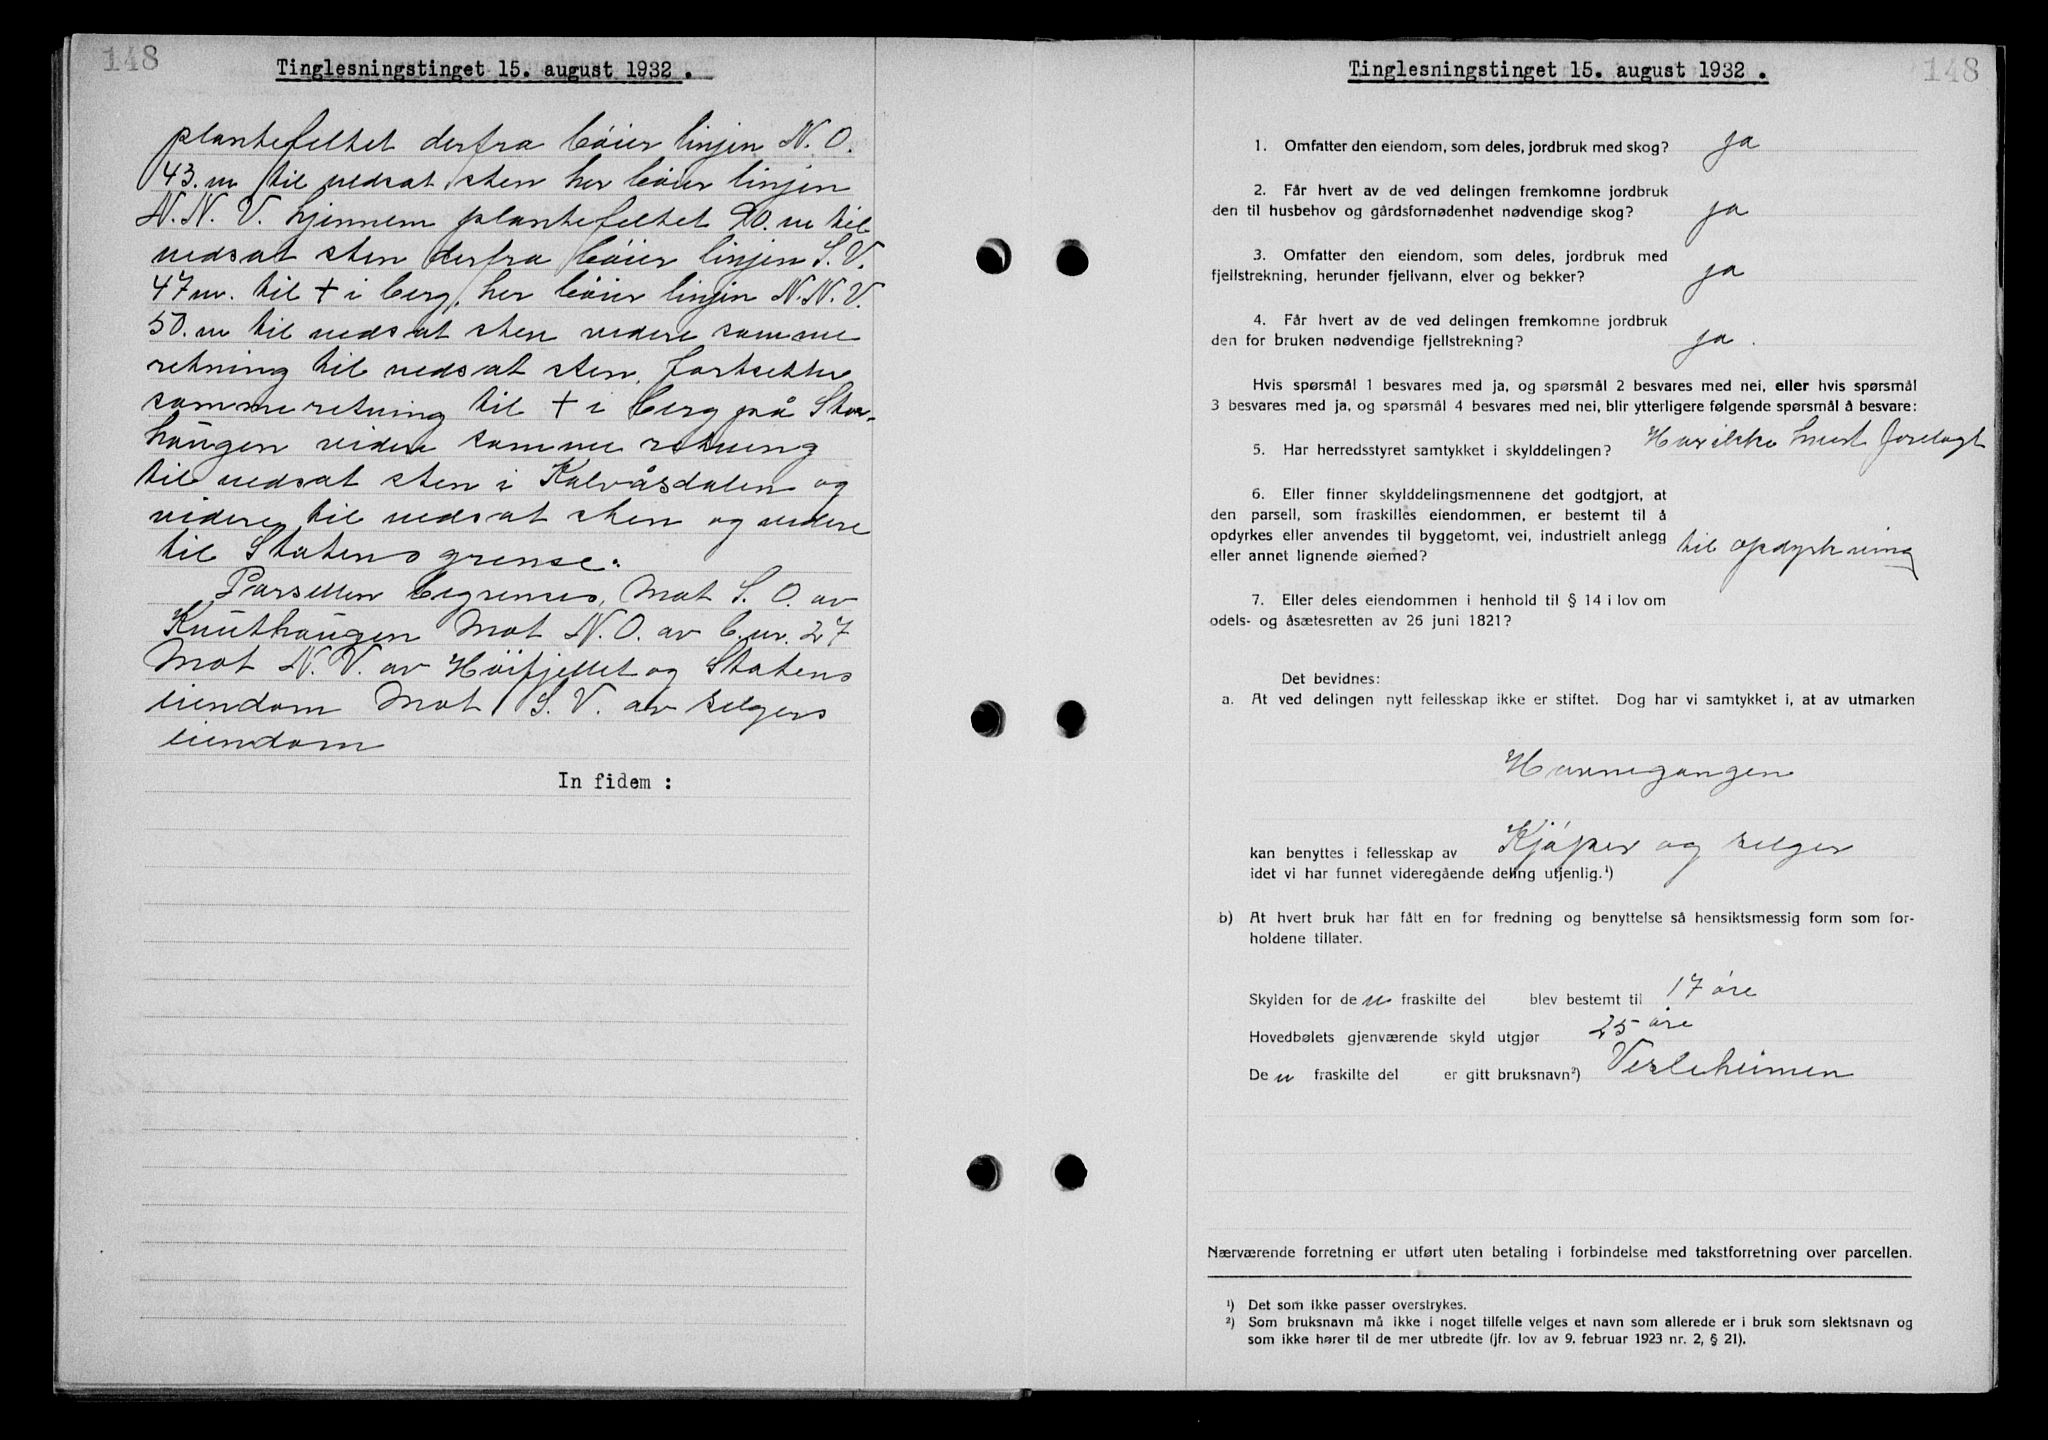 148
Tinglesningstinget 15. august 1932.
plantefeltet derfra böier linjen N.O.
43.m til nedsat sten her böier linjen
N.N.V. hjennem plantefeltet 90.m til
nedsat sten derfra böier linjen S.V.
47m. til + i berg, her böier linjen N.N.V.
50.m til nedsat sten videre samme
retning til nedsat sten, fortsetter
samme retning til + i berg på Stor-
haugen videre samme retning
til nedsat sten i Kalvåsdalen og
videre til nedsat sten og videre
til Statens grense.
Parsellen begrenses, Mot S.O. av
Knuthaugen Mot N.O. av b.nr. 27
Mot N.V. av Höifjellet og Statens
eiendom Mot S.V. av selgers
eiendom
In fidem :
148
Tinglesningstinget 15. august 1932.
1. Omfatter den eiendom, som deles, jordbruk med skog? ja
2. Får hvert av de ved delingen fremkomne jordbruk
den til husbehov og gårdsfornødenhet nødvendige skog? ja
3. Omfatter den eiendom, som deles, jordbruk med
fjellstrekning, herunder fjellvann, elver og bekker? ja
4. Får hvert av de ved delingen fremkomne jordbruk
den for bruken nødvendige fjellstrekning? ja.
Hvis spørsmål 1 besvares med ja, og spørsmål 2 besvares med nei, eller hvis spørsmål
3 besvares med ja, og spørsmål 4 besvares med nei, blir ytterligere følgende spørsmål å besvare:
5. Har herredsstyret samtykket i skylddelingen? Har ikke hvert forelagt
6. Eller finner skylddelingsmennene det godtgjort, at
den parsell, som fraskilles eiendommen, er bestemt til å
opdyrkes eller anvendes til byggetomt, vei, industrielt anlegg
eller annet lignende øiemed? til opdyrkning
7. Eller deles eiendommen i henhold til § 14 i lov om
odels- og åsætesretten av 26 juni 1821?
Det bevidnes:
a. At ved delingen nytt fellesskap ikke er stiftet. Dog har vi samtykket i, at av utmarken
Havnegangen
kan benyttes i fellesskap av Kjöper og selger
idet vi har funnet videregående deling utjenlig.¹)
b) At hvert bruk har fått en for fredning og benyttelse så hensiktsmessig form som for-
holdene tillater.
Skylden for de n fraskilte del blev bestemt til 17 öre
Hovedbølets gjenværende skyld utgjør 25 öre
De n fraskilte del er gitt bruksnavn²) Vesleheimen
Nærværende forretning er utført uten betaling i forbindelse med takstforretning over parcellen.
¹) Det som ikke passer overstrykes.
²) Som bruksnavn må ikke i noget tilfelle velges et navn som allerede er i bruk som slektsnavn og
som ikke hører til de mer utbredte (jfr. lov av 9. februar 1923 nr. 2, § 21).